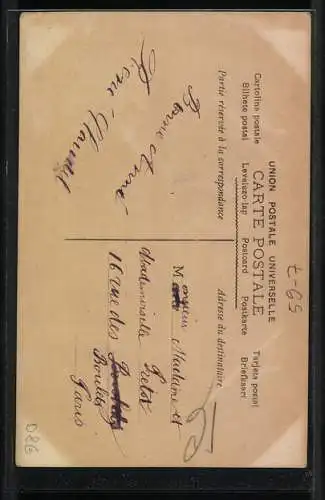 UNION POSTALE UNIVERSELLE
CARTE POSTALE
Cartolina postale Levelezo-lap Postcard Postkarte Tarjeta postal
Bilhete postal Briefkaart
Partie réservée à la correspondance
Adresse du destinataire
Bonne Année
René
Monsieur Madame et
Mademoiselle
16 rue des
Boulets
Paris
t-69
D86